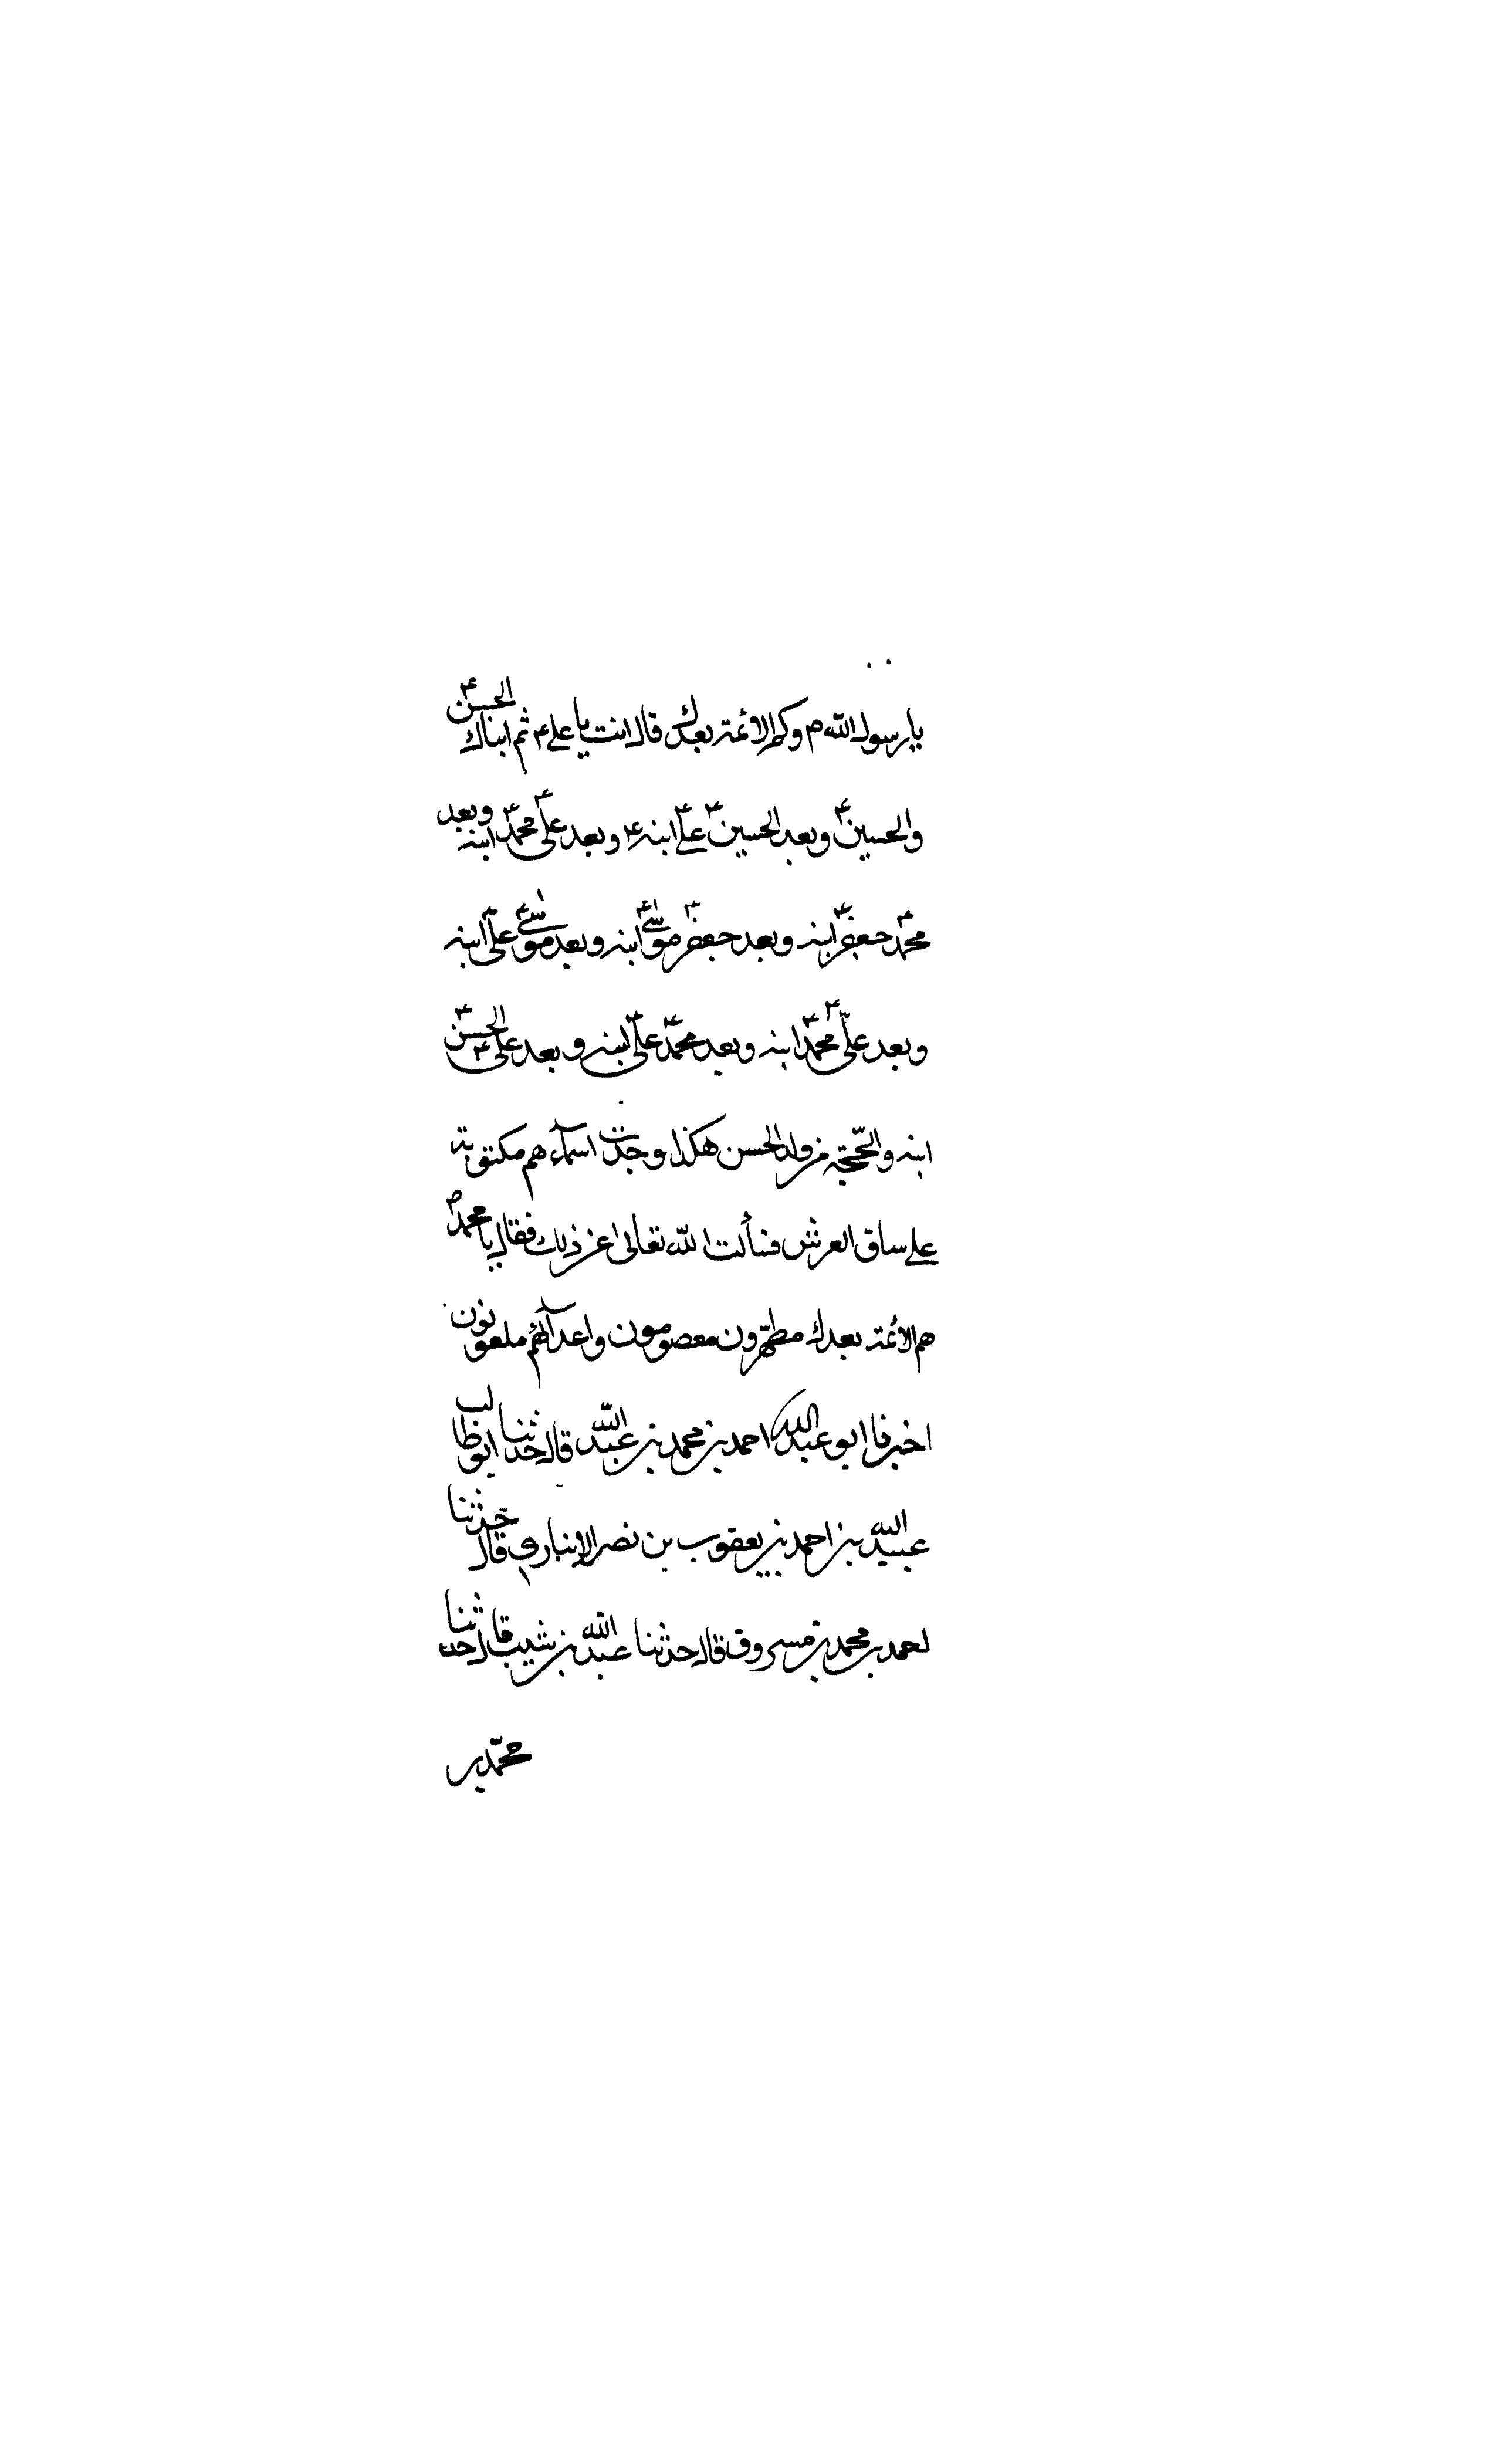 يا رسول الله ص وكم الائمة بعدك قال انت يا علي ع ثم ابناك الحسن ع
والحسين ع وبعد الحسين ع علي ع ابنه ع وبعد علي ع محمد ع ابنه وبعد
محمد ع جعفر ع ابنه وبعد جعفر ع موسى ع ابنه وبعد موسى ع علي ع ابنه
وبعد علي ع محمد ع ابنه وبعد محمد ع علي ع ابنه وبعد علي ع الحسن ع
ابنه والحجة من ولد الحسن هكذا وجدت اسمآءهم مكتوبة
على ساق العرش فسألت الله تعالى عن ذلك فقال يا محمد ص
هم الائمة بعدك مطهّرون معصومون واعدآئهم ملعونون
اخبرنا ابو عبد الله احمد بن محمد بن عبد الله قال حدثنا ابو طالب
عبيد الله بن احمد بن يعقوب بن نصر الانباري قال حدثنا
احمد بن محمد بن مسروق قال حدثنا عبد الله بن شبيب قال حدثنا
محمّد بن